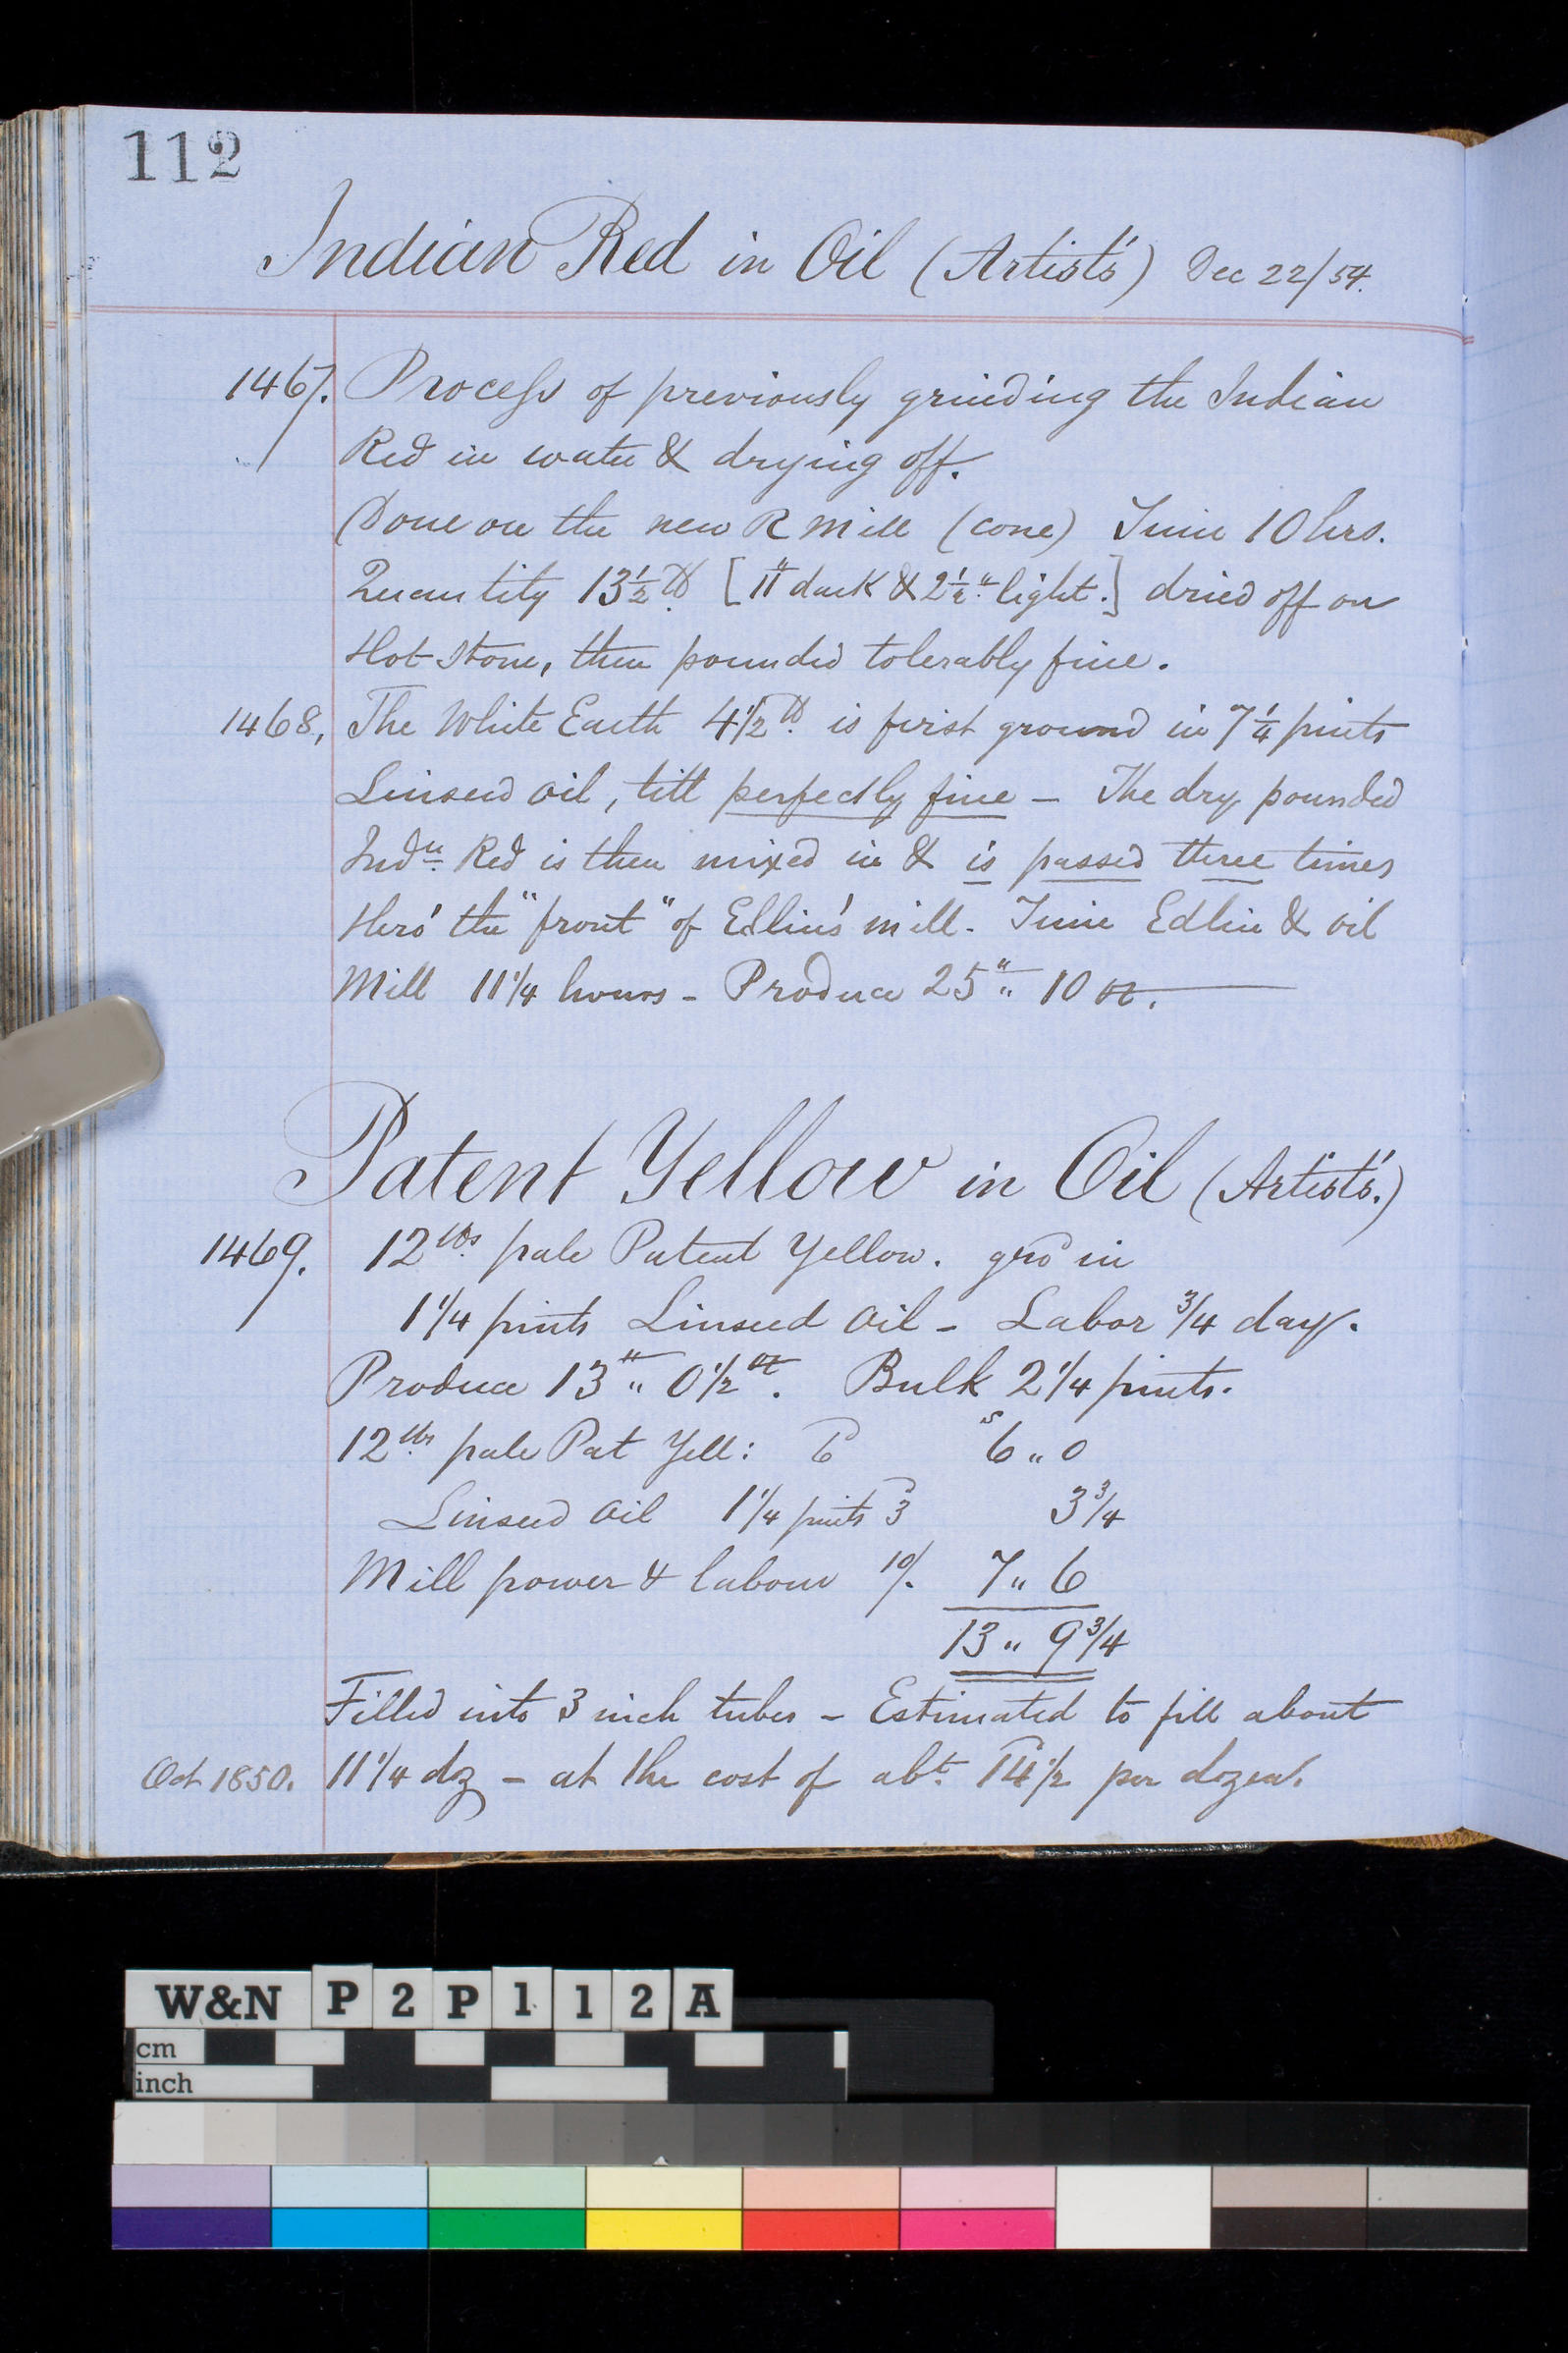 112
Indian Red in Oil (Artist's) Dec 22/54.
1467. Process of previously grinding the Indian
Red in water & drying off.
Done on the new R Mill (cone) Time 10 hrs.
Quantity 13½ lb [11" dark & 2½" light.] dried off on
Hot Stone, then pounded tolerably fine.
1468, The White Earth 4½ lb. is first ground in 7¼ pints
Linseed oil, till perfectly fine – The dry pounded
Indn Red is then mixed in & is passed three times
thro' the "front" of Edlin's mill. Time Edlin & oil
Mill 11¼ hours – Produce 25 " " 10 oz.
Patent Yellow in Oil (Artists'.)
1469. 12 lbs pale Patent Yellow. grd in
1¼ pints Linseed oil – Labor ¾ day.
Produce 13 " " 0½ oz. Bulk 2¼ pints.
12 lbs pale Pat Yell: 6 s 6 " 0
Linseed oil 1¼ pints 3 3¾
Mill power & labour 10/. 7 " 6
13 " 9¾
Filled into 3 inch tubes – Estimated to fill about
Oct 1850. 11¼ doz – at the cost of abt. 14½ per dozen.
W&N P2P112A
cm
inch